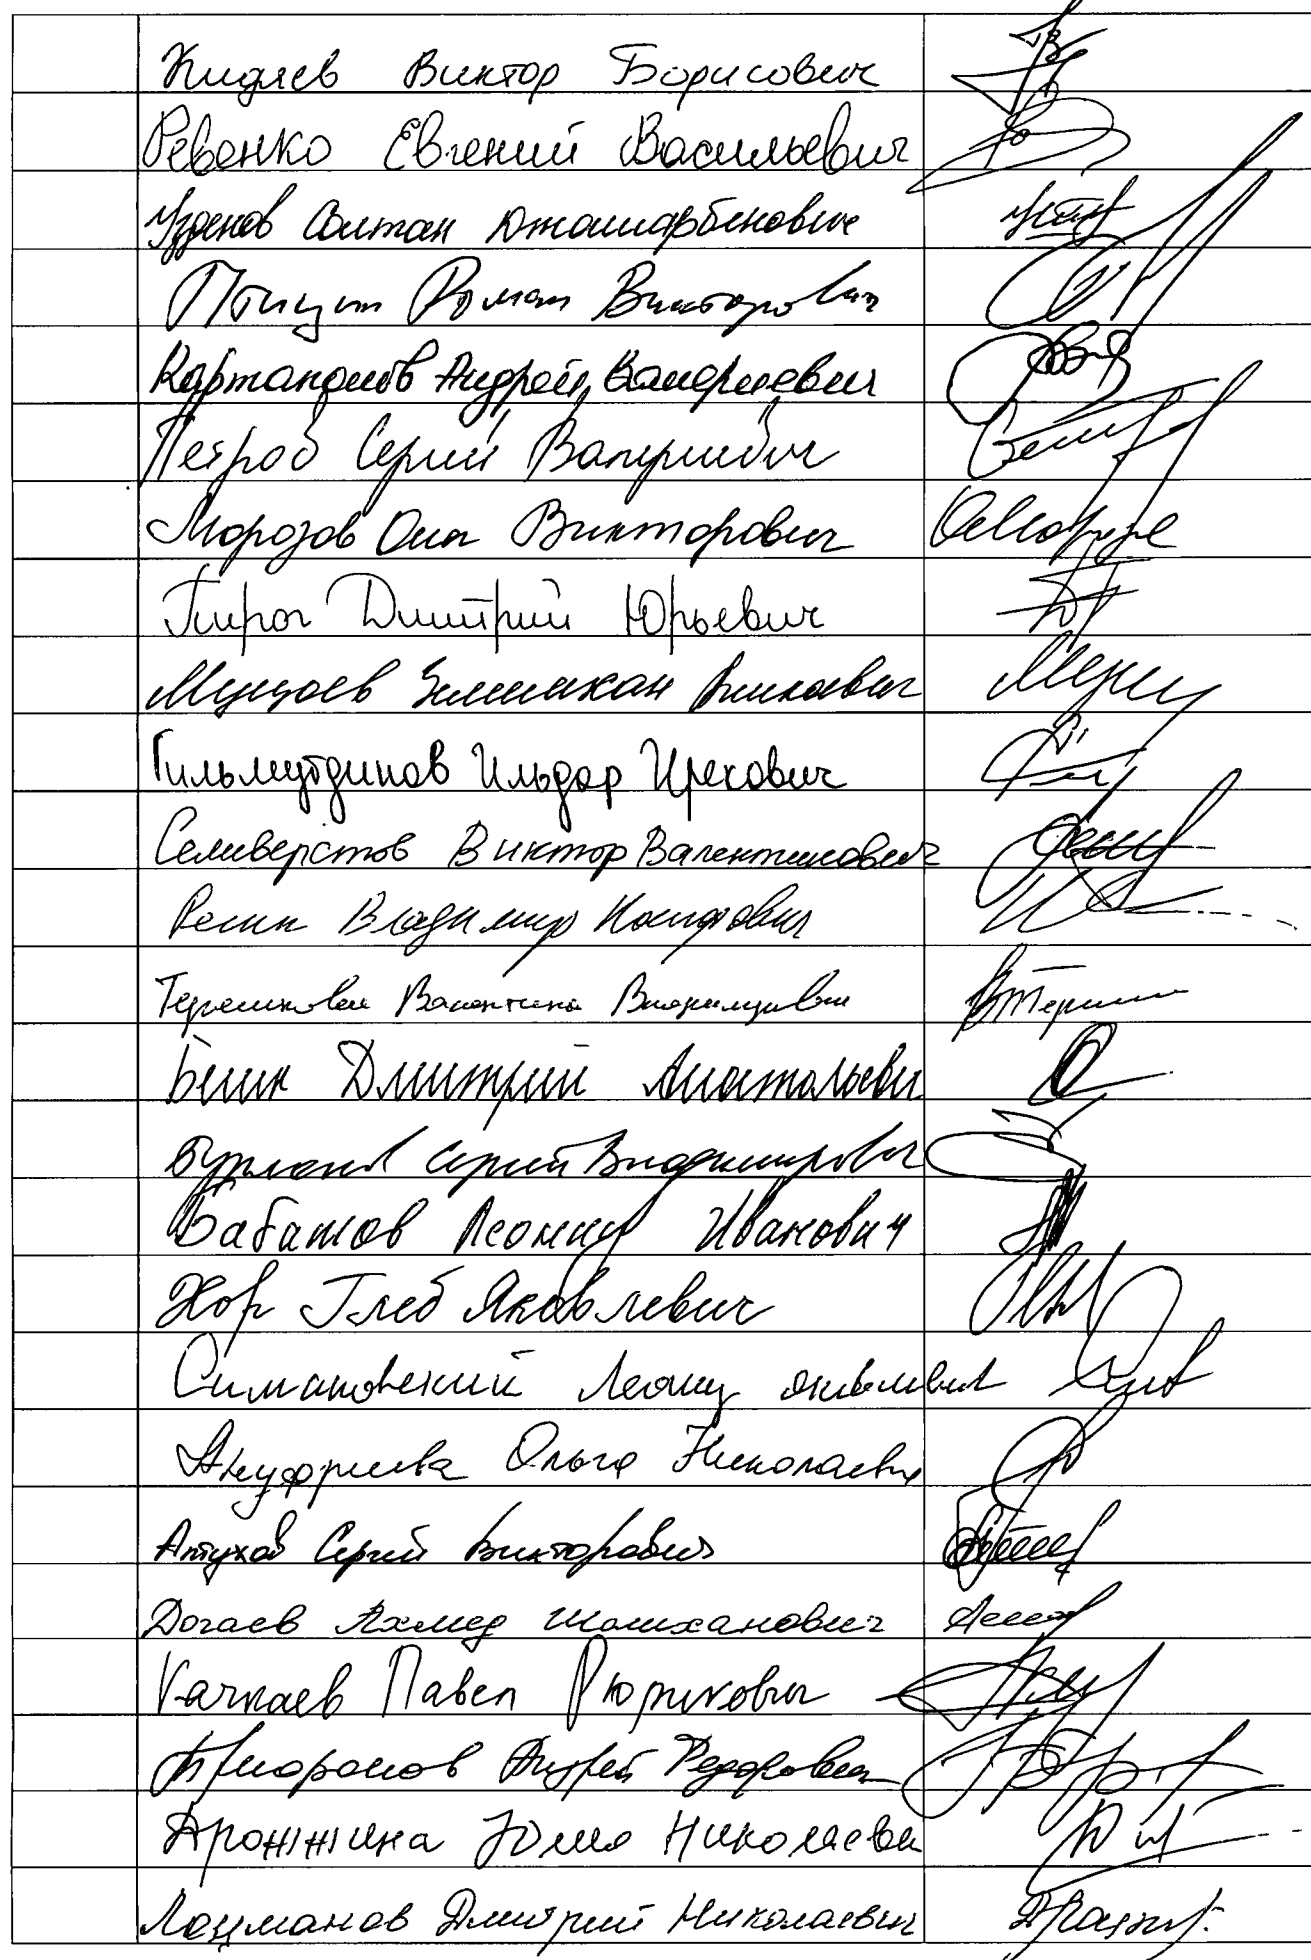 Кидяев Виктор Борисович
Ревенко Евгений Васильевич
Узденов Солтан
Птицын Роман Викторович
Картаполов Андрей Валериевич
Петров Сергей Валериевич
Морозов Олег Викторович
Пирог Дмитрий Юрьевич
Муцоев Зелимхан Аликоевич
Гильмутдинов Ильдар Ирекович
Селиверстов Виктор Валентинович
Ресин Владимир Иосифович
Терешкова Валентина Владимировна
Белик Дмитрий Анатольеви
Бурлаков Сергей Владимирович
Бабашов Леонид Иванович
Хор Глеб Яковлевич
Симановский Леонид Яковлевич
Ануфриева Ольга Николаевна
Алтухов Сергей Викторович
Догаев Ахмед Шамханович
Качкаев Павел Рюрикович
Андрей Федорович
Дрожжина Юлия Николаевна
Лоцманов Дмитрий Николаевич